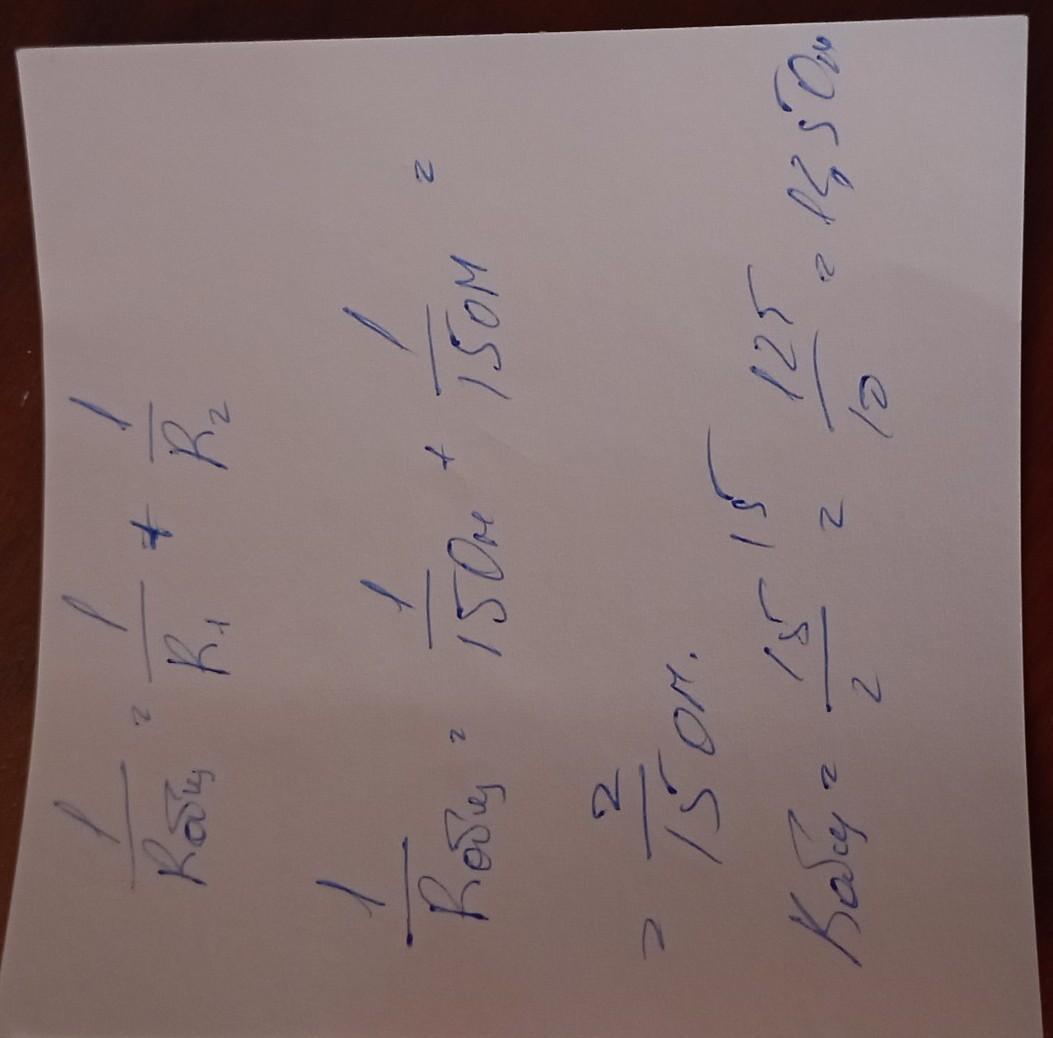 1/Rобщ = 1/R1 + 1/R2
1/Rобщ = 1/15Ом + 1/15Ом =
= 2/15 Ом.
Rобщ = 15/2 15 = 125/10 = 12,5 Ом